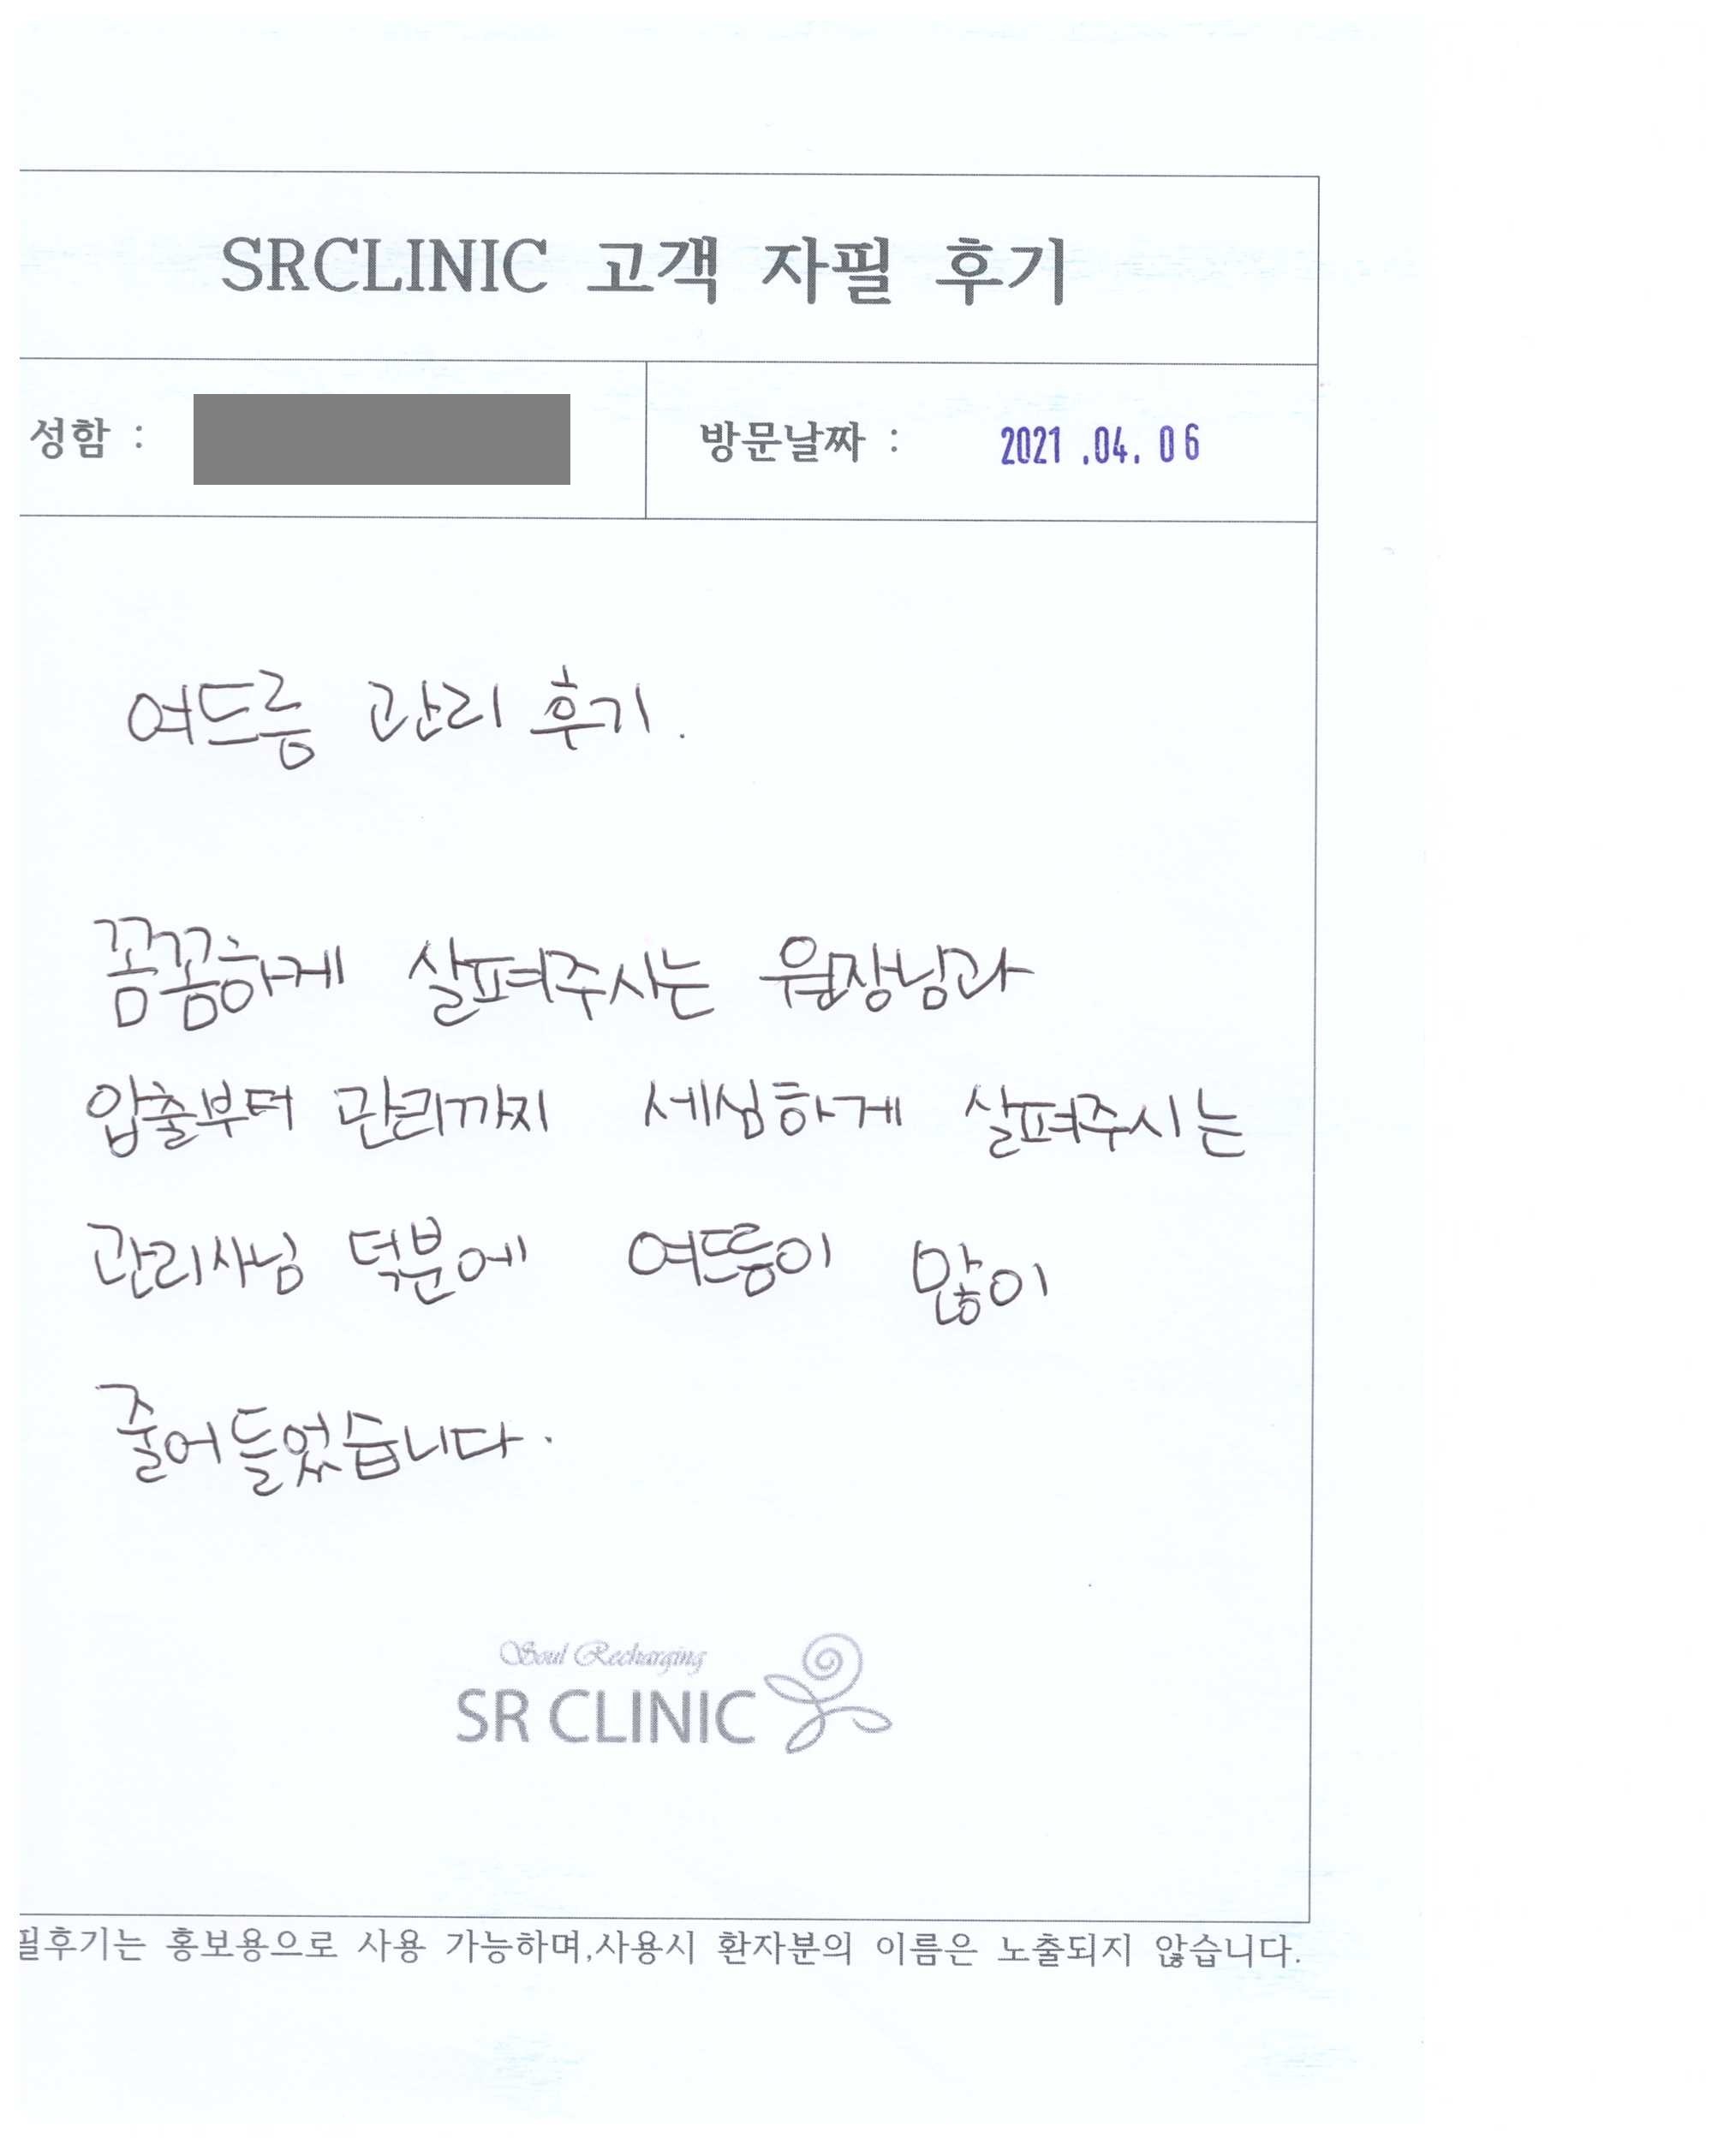 SRCLINIC 고객 자필 후기
성함 :
방문날짜 : 2021 .04. 06
여드름 관리 후기.
꼼꼼하게 살펴주시는 원장님과
압출부터 관리까지 세심하게 살펴주시는
관리사님 덕분에 여뜨름이 많이
줄어들었습니다.
Soul Recharging
SR CLINIC
필후기는 홍보용으로 사용 가능하며,사용시 환자분의 이름은 노출되지 않습니다.